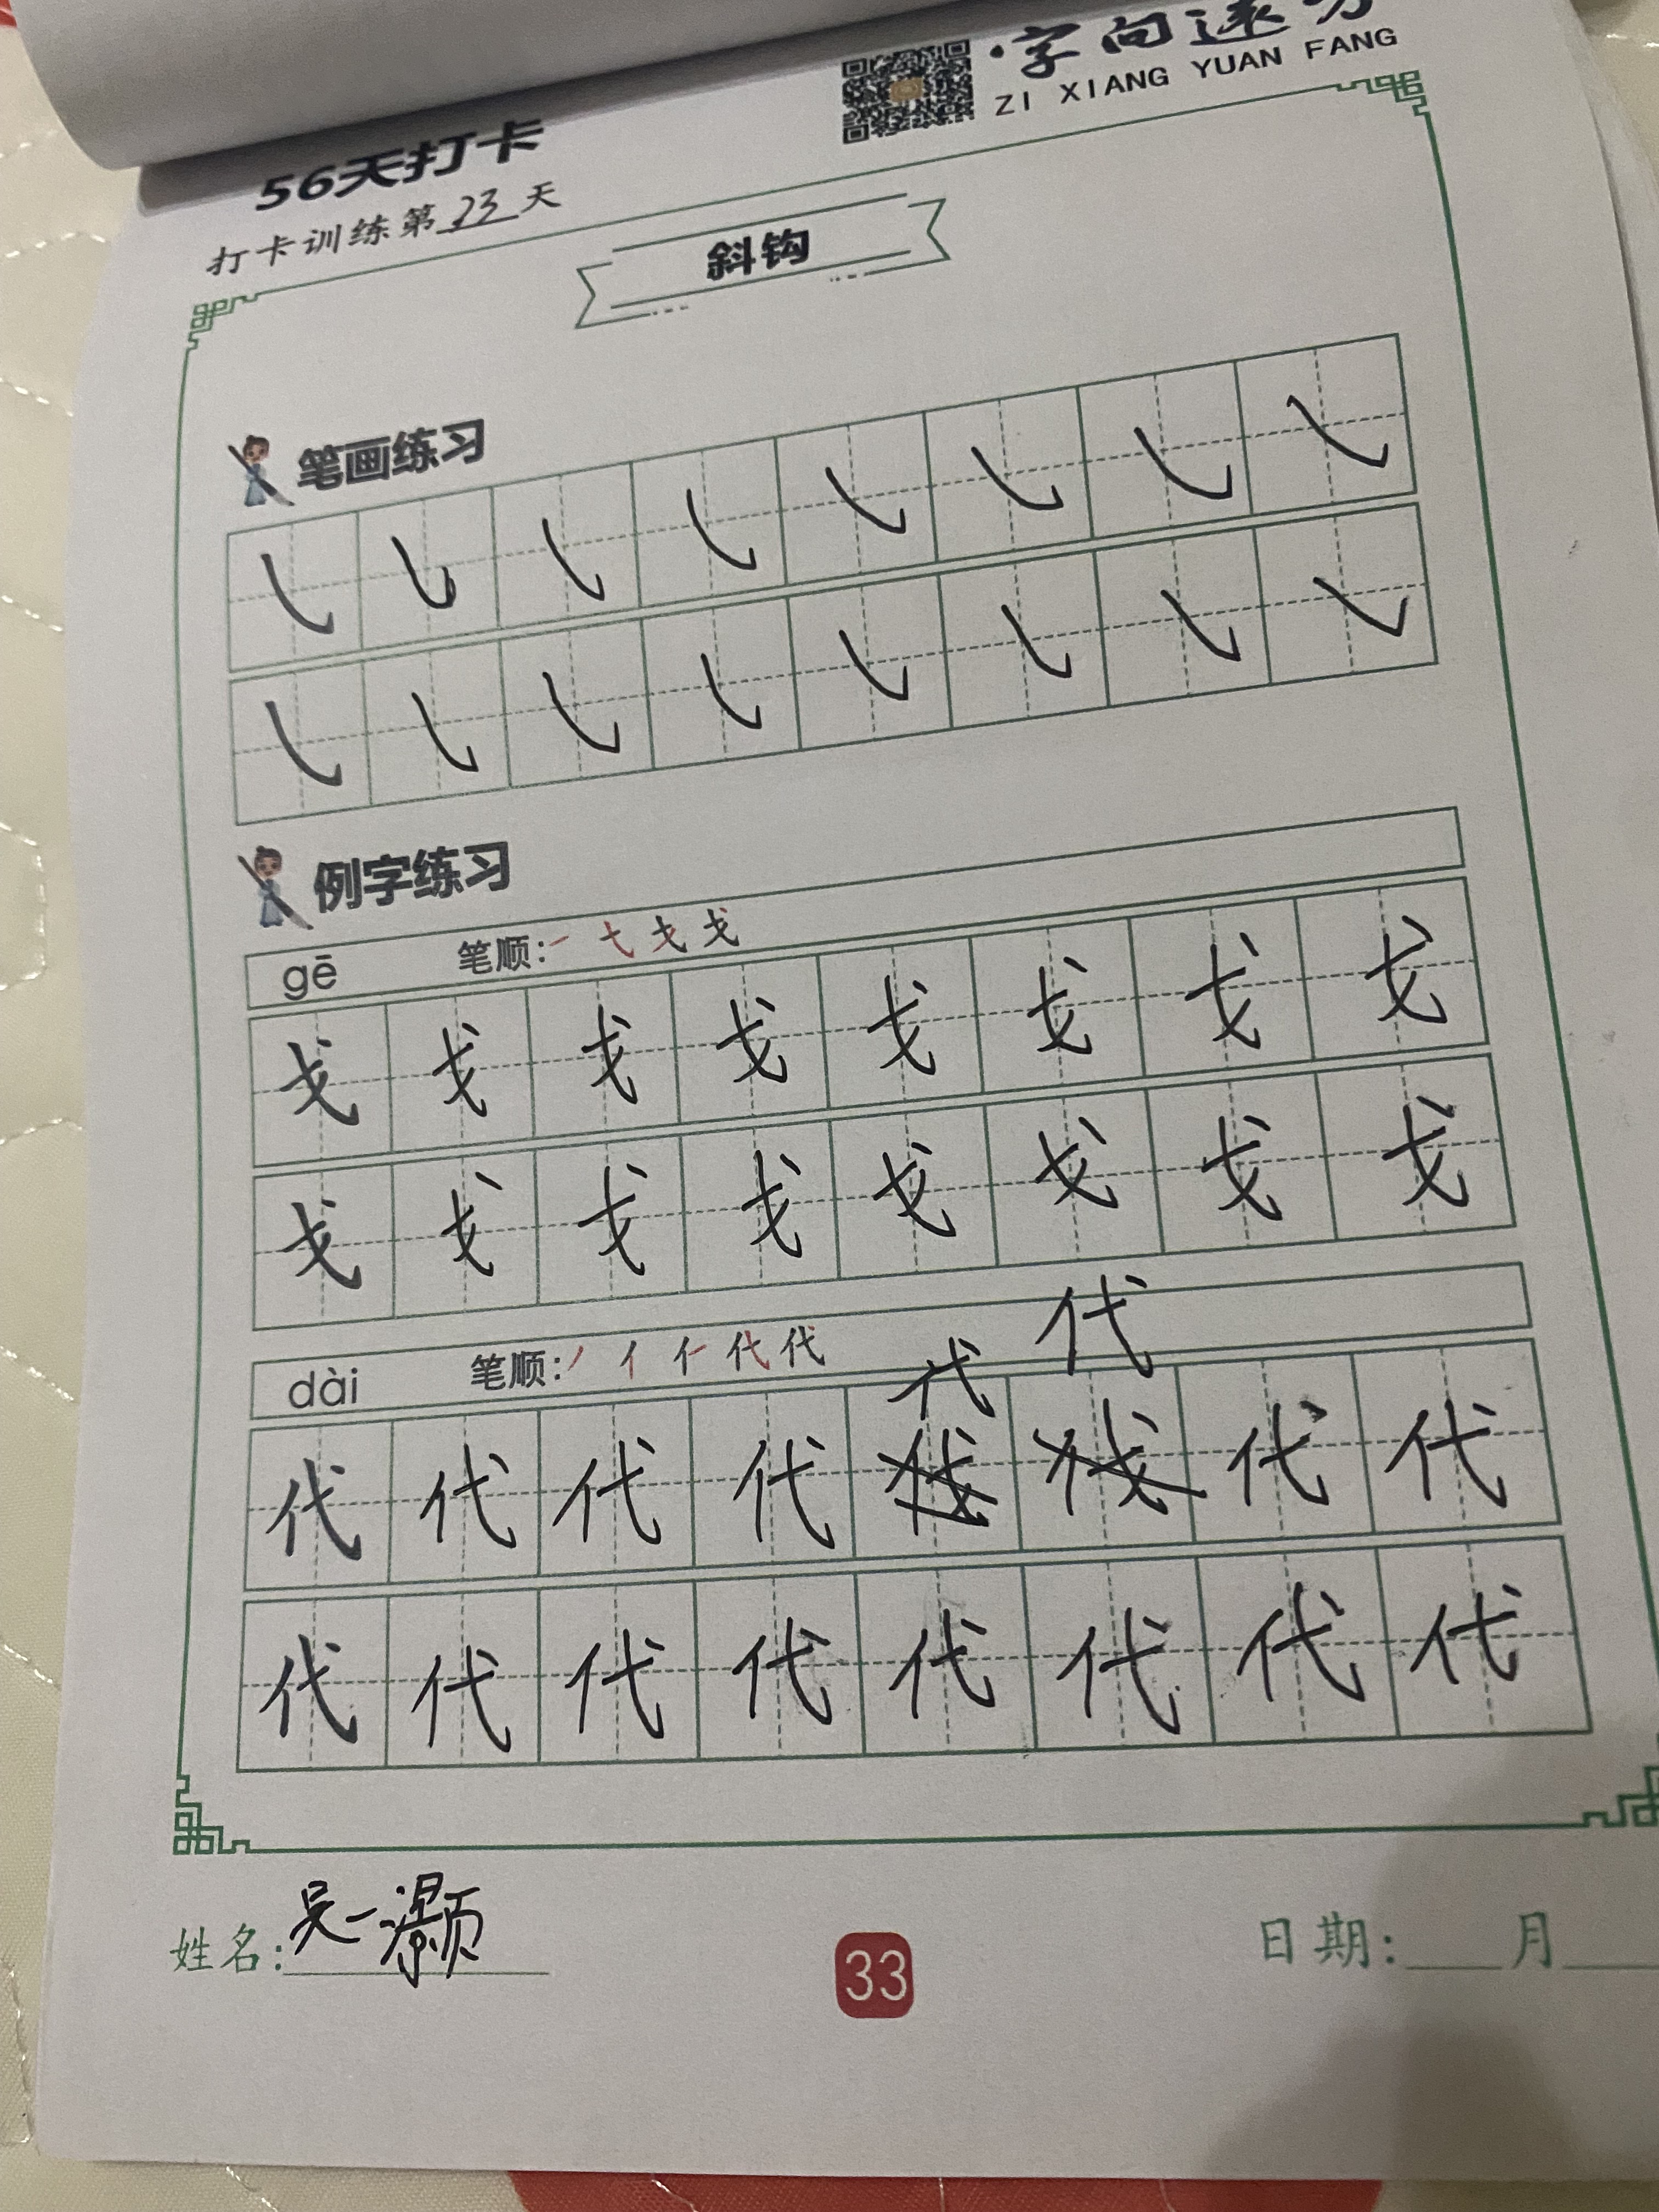 ·字向远方
ZI XIANG YUAN FANG
56天打卡
打卡训练第23天
斜钩
笔画练习
㇂㇂㇂㇂㇂㇂㇂㇂
㇂㇂㇂㇂㇂㇂㇂㇂
例字练习
gē 笔顺:一 弋 戈 戈
戈戈戈戈戈戈戈戈
戈戈戈戈戈戈戈戈
代 代
dài 笔顺:丿 亻 代 代
代代代代代代
代代代代代代代代
姓名:吴一灏
33
日期: 月